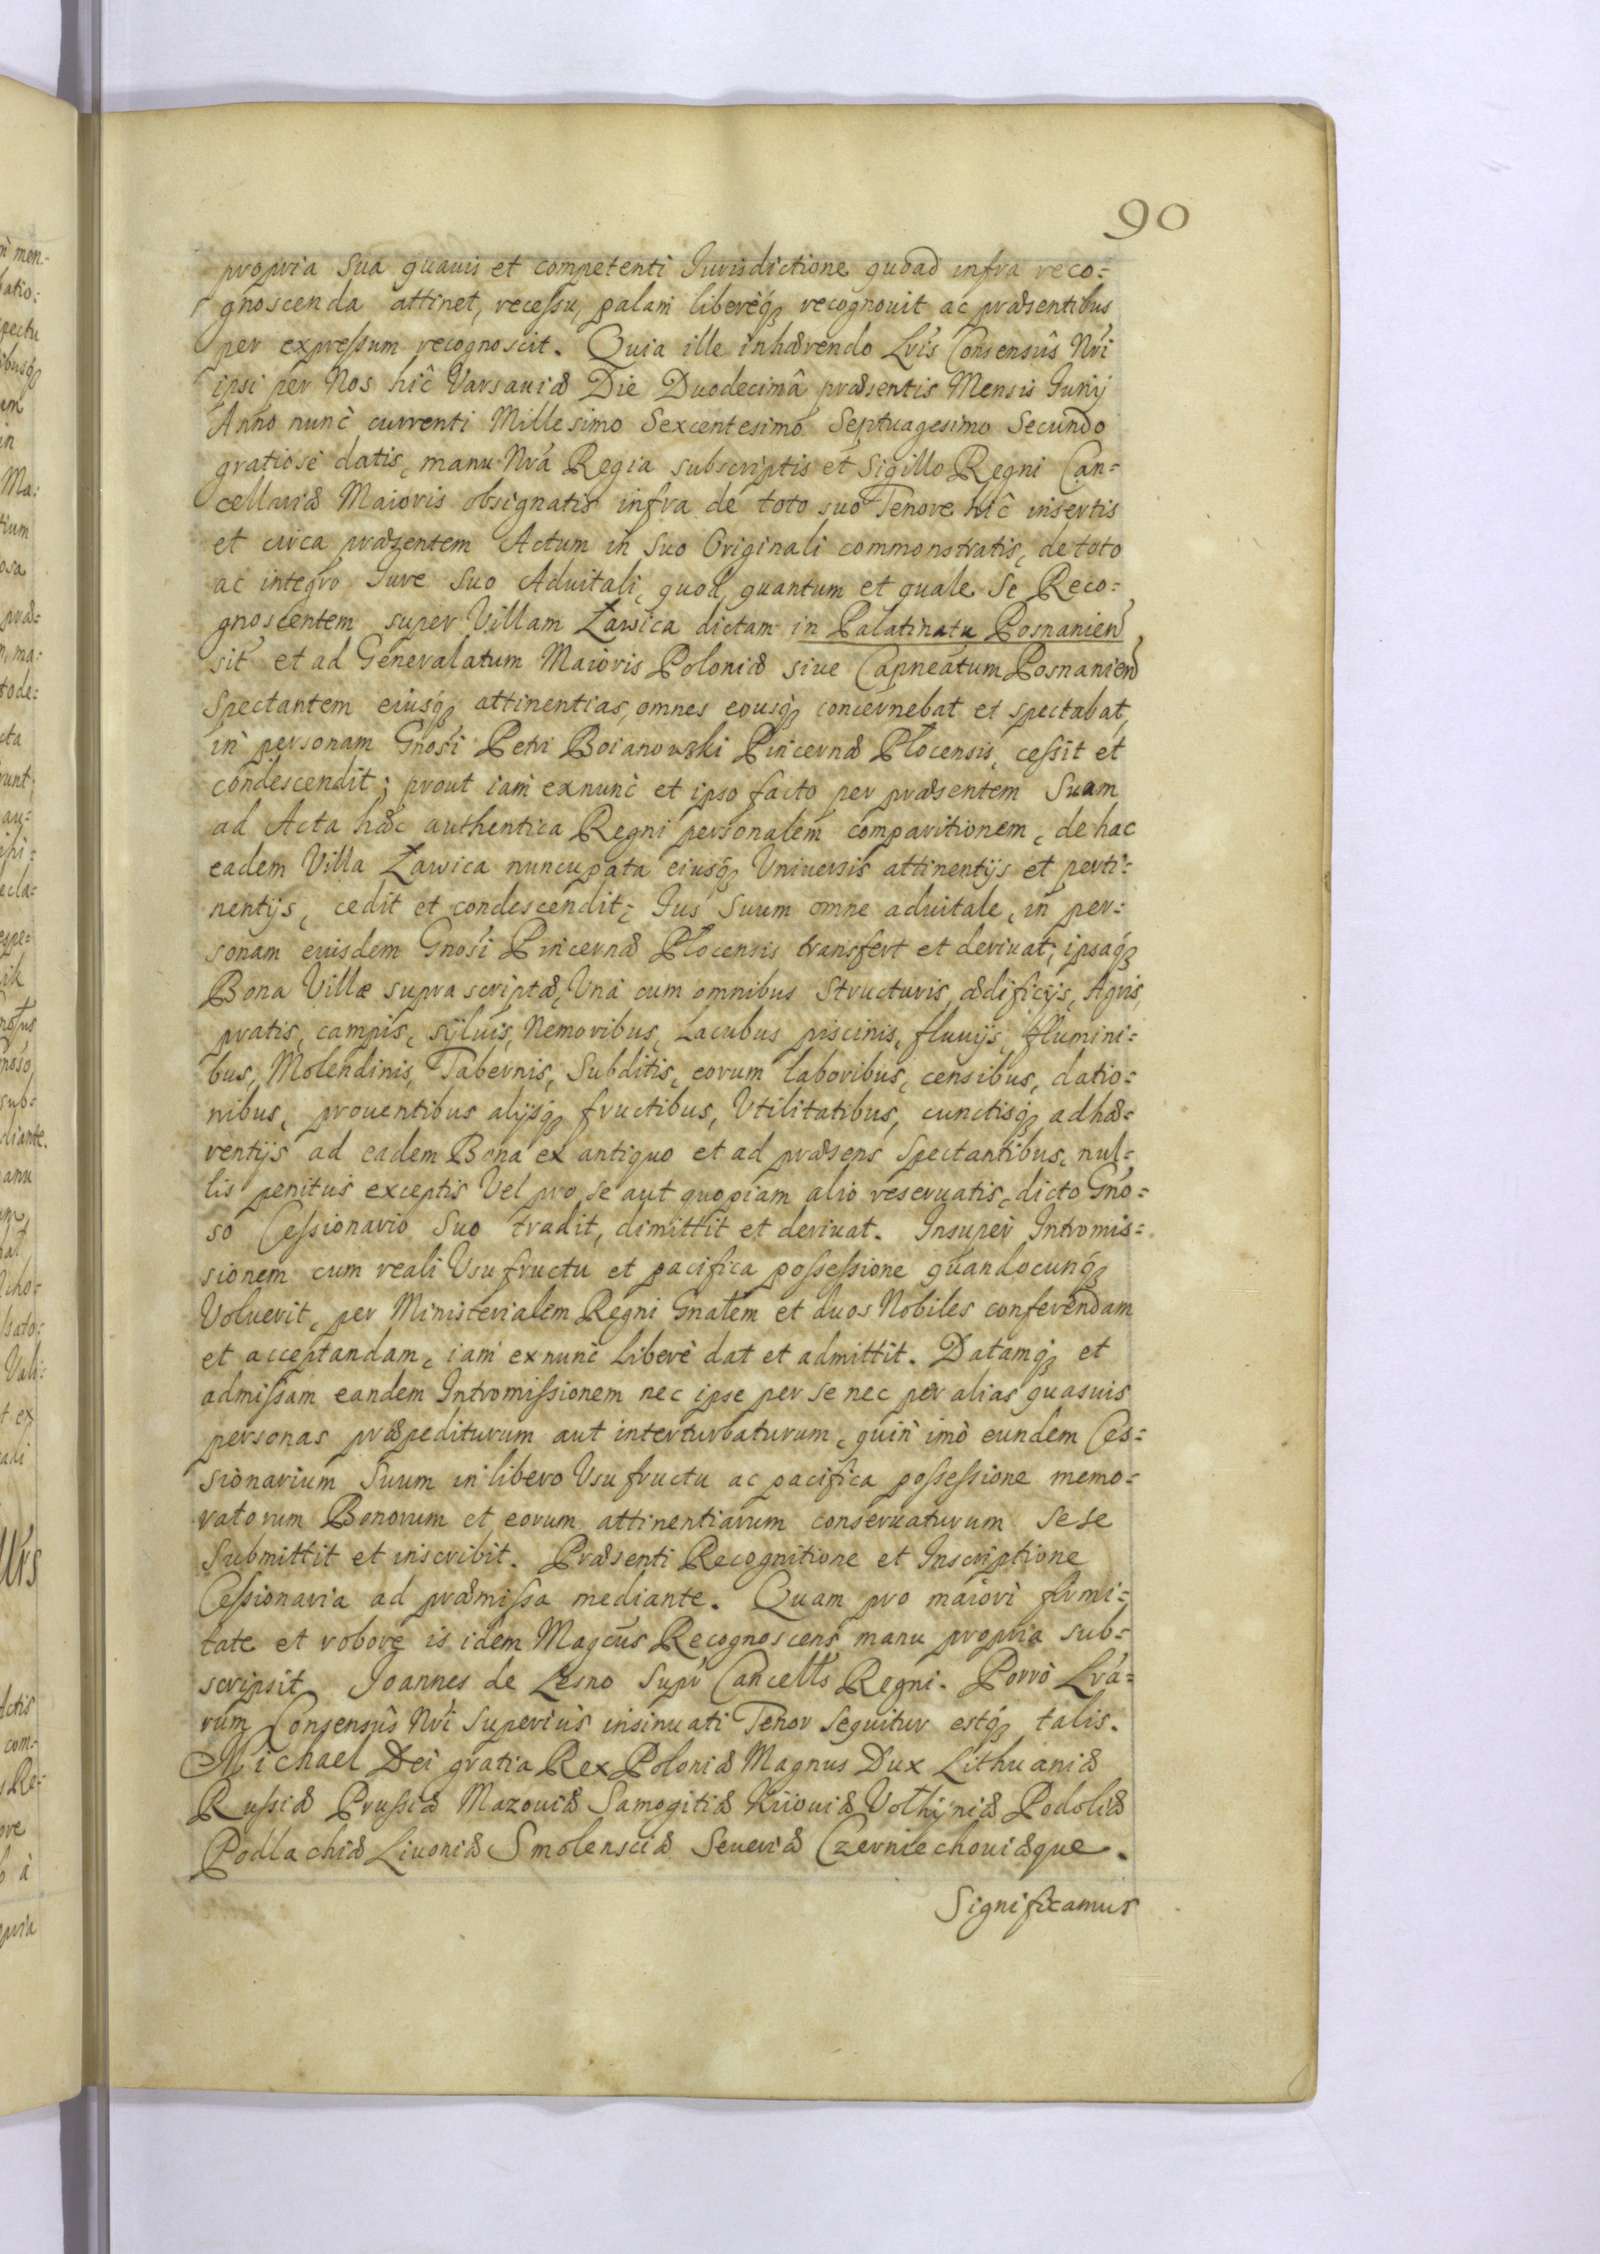 90
propria sua quavis et competenti Jurisdictione quoad infra reco=
gnoscenda attinet, recessu, palam libereq́ recognouit ac præsentibus
per expressum recognoscit. Quia ille inhærendo Lr̃is Consensûs Nr̃i
ipsi per Nos hîc Varsauiæ Die Duodecimâ præsentis Mensis Junij
Anno nunc currenti Millesimo Sexcentesimo Septuagesimo Secundo
gratiosè datis, manu Nr̃a Regia subscriptis et Sigillo Regni Can=
cellariæ Maioris obsignatis infra de toto suo Tenore hîc insertis
et circa præsentem Actum in Suo Originali commonstratis, de toto
ac integro Jure Suo Aduitali, quod, quantum et quale Se Reco=
gnoscentem super Villam Zawica dictam in Palatinatu Posnanien̄
sit et ad Generalatum Maioris Poloniæ siue Capneatum Posnanien̄
Spectantem eiusq́ attinentias, omnes eousq́ concernebat et spectabat,
in personam Gnosi Petri Boianowski Pincernæ Plocensis, cessit et
condescendit; prout iam exnunc et ipso facto per præsentem Suam
ad Acta hæc authentica Regni personalem comparitionem, de hac
eadem Villa Zawica nuncupata eiusq́ Vniuersis attinentijs et perti=
nentijs, cedit et condescendit; Jus Suum omne aduitale, in per=
sonam eiusdem Gnosi Pincernæ Plocensis transfert et deriuat, ipsaq́
Bona Villæ supra scriptæ, Vnà cum omnibus Structuris, ædificijs, Agris,
pratis, campis, syluis, Nemoribus, Lacubus piscinis, fluuijs, flumini=
bus, Molendinis, Tabernis, Subditis, eorum laboribus, censibus, datio=
nibus, prouentibus alijsq́ fructibus, Vtilitatibus, cunctisq́ adhæ=
rentijs ad eadem Bona ex antiquo et ad præsens Spectantibus, nul=
lis penitus exceptis Vel pro se aut quopiam alio reseruatis, dicto Gno=
so Cessionario Suo tradit, dimittit et deriuat. Insuper Intromis=
sionem cum reali Vsufructu et pacifica possessione quandocunq́
Voluerit, per Ministerialem Regni Gnalem et duos Nobiles conferendam
et acceptandam, iam exnunc liberè dat et admittit. Datamq́ et
admissam eandem Intromissionem nec ipse per se nec per alias quasuis
personas præpediturum aut interturbaturum, quin imò eundem Ces=
sionarium Suum in libero Vsufructu ac pacifica possessione memo=
ratorum Bonorum et eorum attinentiarum conseruaturum sese
Submittit et inscribit. Præsenti Recognitione et Inscriptione
Cessionaria ad præmissa mediante. Quam pro maiori firmi=
tate et robore is idem Magcus Recognoscens manu propria sub=
scripsit Joannes de Lesno Supr Cancells Regni. Porrò Lr̃a=
rum Consensûs Nr̃i Superius insinuati Tenor sequitur estq́ talis.
Michael Dei gratia Rex Poloniæ Magnus Dux Lithuaniæ
Russiæ Prussiæ Mazouiæ Samogitiæ Kijouiæ Volhyniæ Podoliæ
Podlachiæ Liuoniæ Smolensciæ Seueriæ Czerniechouiæque.
Significamus